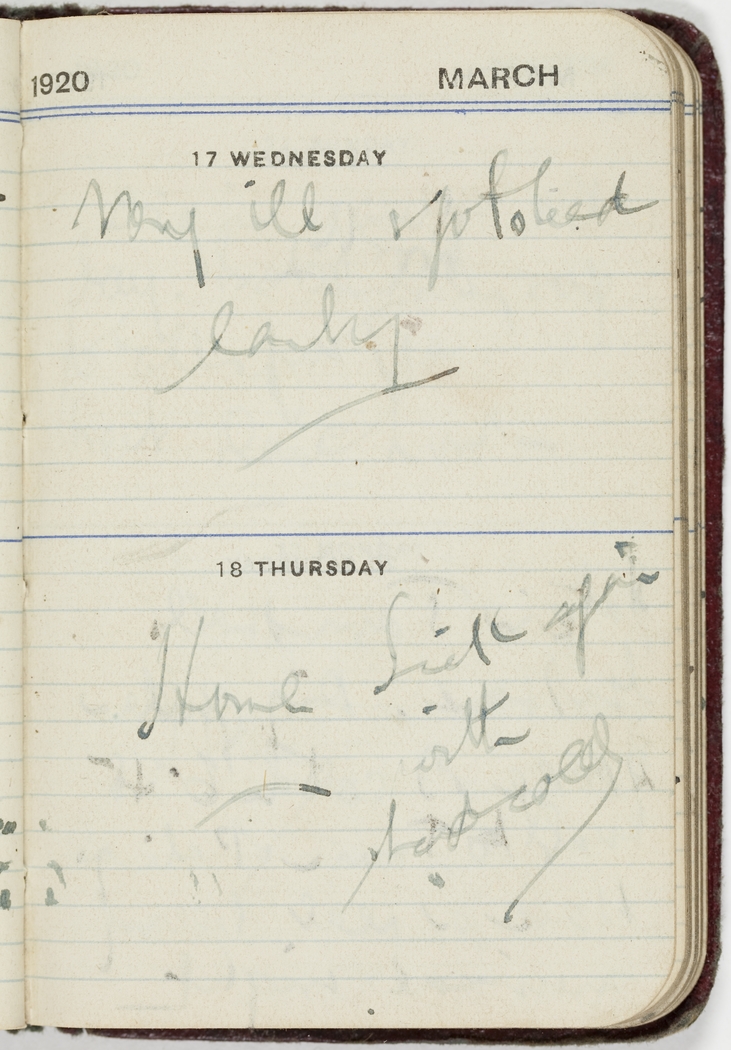 1920 MARCH
17 WEDNESDAY
Very ill & got to bed
early
18 THURSDAY
Home Sick again
with
bad cold